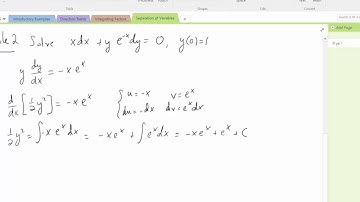 Introductory Examples Direction Fields Integrating Factors Separation of Variables
Add Page
2 Solve xdx + y e^-x dy = 0, y(0)=1
y dy/dx = -x e^x
d/dx [1/2 y²] = -x e^x { u = -x v = e^x
du = -dx dv = e^x dx
1/2 y² = ∫ -x e^x dx = -x e^x + ∫ e^x dx = -x e^x + e^x + C